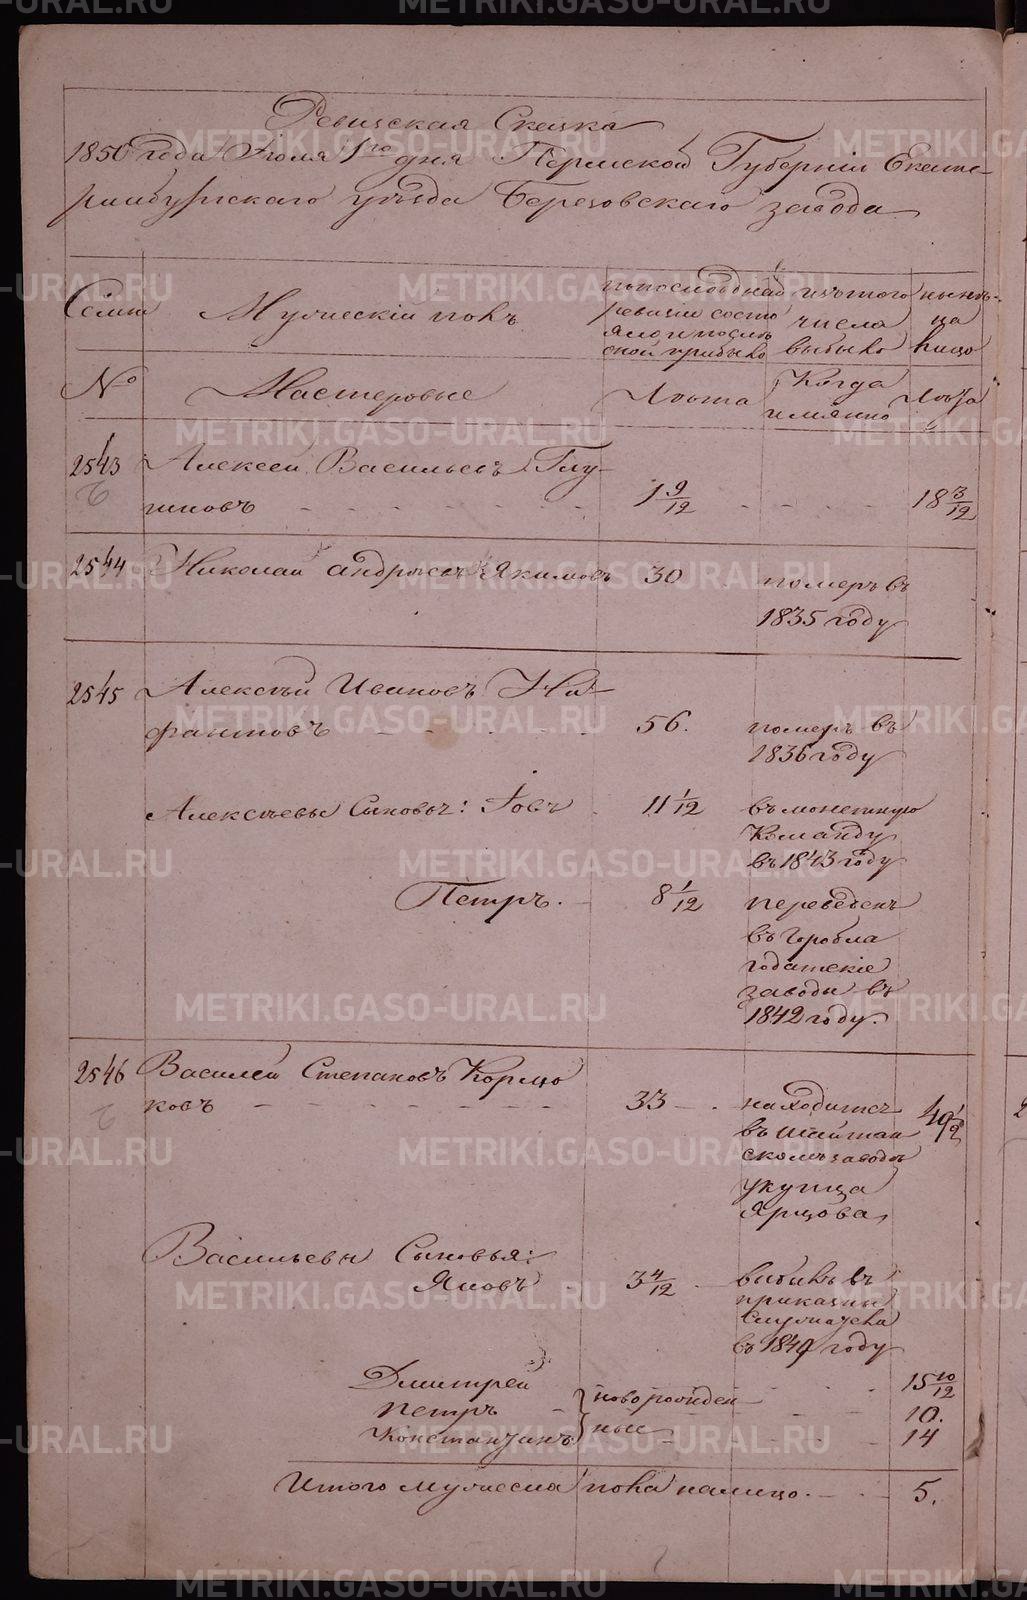 Ревизская Сказка
1850 года Июля 1го дня Пермской Губернiи Екате-
ринбургскаго уѣзда Березовскаго завода
Семьи
Мужескiй полъ
попоследней
ревизiи состо
яло и послѣ
оной прибыло
изътого
числа
выбыло
нынѣ-
на
лицо
№
Мастеровые
Лѣта
Когда
имянно
Лѣта
2543
Алексей Васильевъ Глу-
шковъ
1 9/12
18 3/12
2544
Николай андрѣевъ Якимовъ
30
померъ въ
1835 году
2545
Алексѣй Ивановъ Ни-
фантовъ
56.
померъ въ
1836 году
Алексѣевы Сыновья: Iовъ
11 1/12
въ монетную
Команду
въ 1843 году
Петръ.
8 1/12
переведенъ
въ Горобла
годатскiе
заводы въ
1842 году.
2546
Василей Степановъ Кормщи
ковъ
33
находится
въ Шайтан
скомъ заводѣ
укупца
Ярцова
49 1/2
Васильевы Сыновья:
Яковъ
3 4/12
выбылъ въ
в 1849 году
Дмитрей
новорожден
15 10/12
Петръ
10.
Константинъ
ные
14
Итого мужеска пола налицо.
5.
METRIKI.GASO-URAL.RU